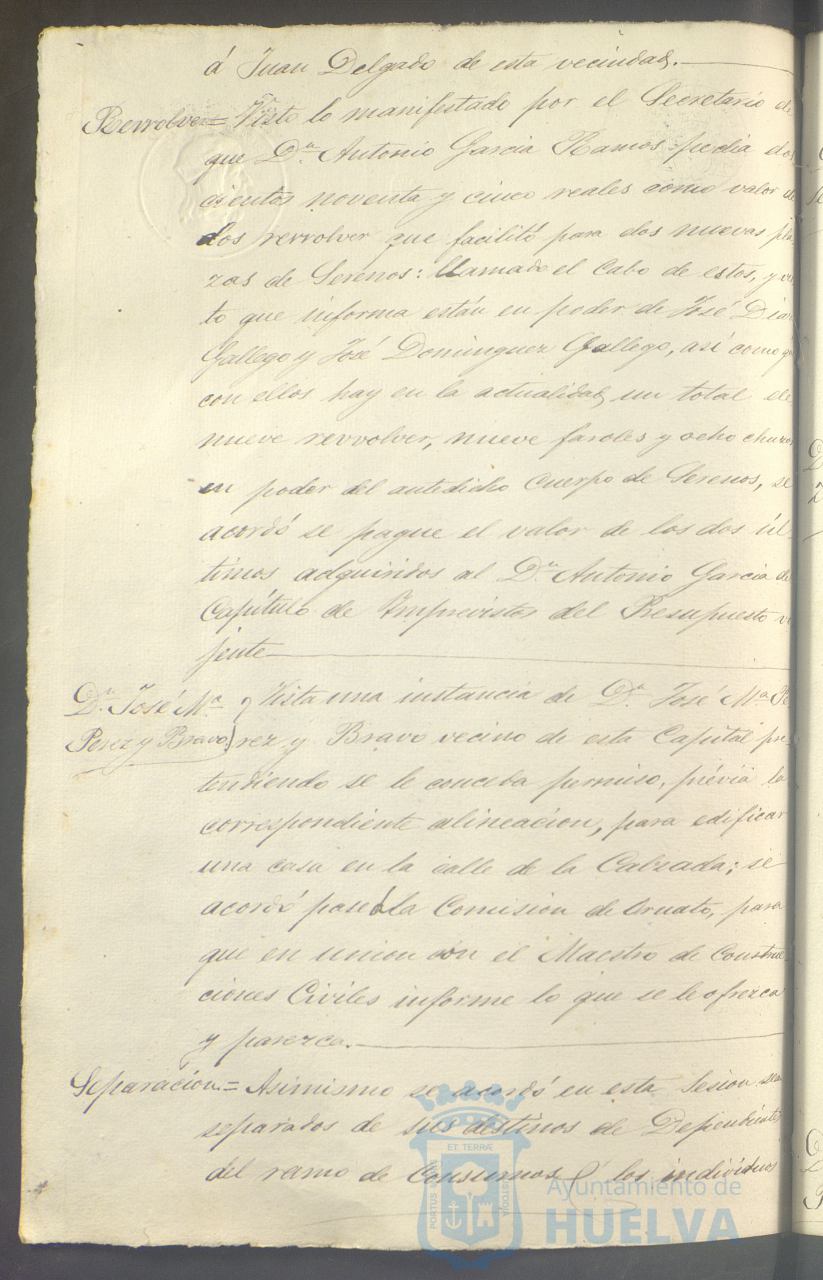 á Juan Delgado de esta vecindad.
Revvolver= Visto lo manifestado por el Secretario de
que Dn. Antonio Garcia Ramos pedia dos
cientos noventa y cinco reales como valor de
dos revvolver que facilitó para dos nuevas pla
zas de Serenos: llamado el Cabo de estos, y vis
to que informa están en poder de José Diaz
Gallego y José Dominguez Gallego, así como que
con ellos hay en la actualidad, un total de
nueve revvolver, nueve faroles y ocho chuzos
en poder del antedicho Cuerpo de Serenos, se
acordó se pague el valor de los dos úl-
timos adquiridos al Dn. Antonio Garcia de
Capítulo de Imprevistos del Presupuesto vi
jente
Dn. José Ma.
Perez y Bravo
Vista una instancia de Dn. José Ma. Pe
rez y Bravo vecino de esta Capital pre-
tendiendo se le conceda permiso, prévia la
correspondiente alineacion, para edificar
una casa en la calle de la Calzada; se
acordó pase á la Comision de Ornato, para
que en union con el Maestro de Construc-
ciones Civiles informe lo que se le ofrezca
y parezca.
Separación= Asimismo se acordó en esta Sesion sean
separados de sus destinos de Dependientes
del ramo de Consumos á los individuos
ET TERRÆ
PORTUS MARIS
CUSTODIA
Ayuntamiento de
HUELVA